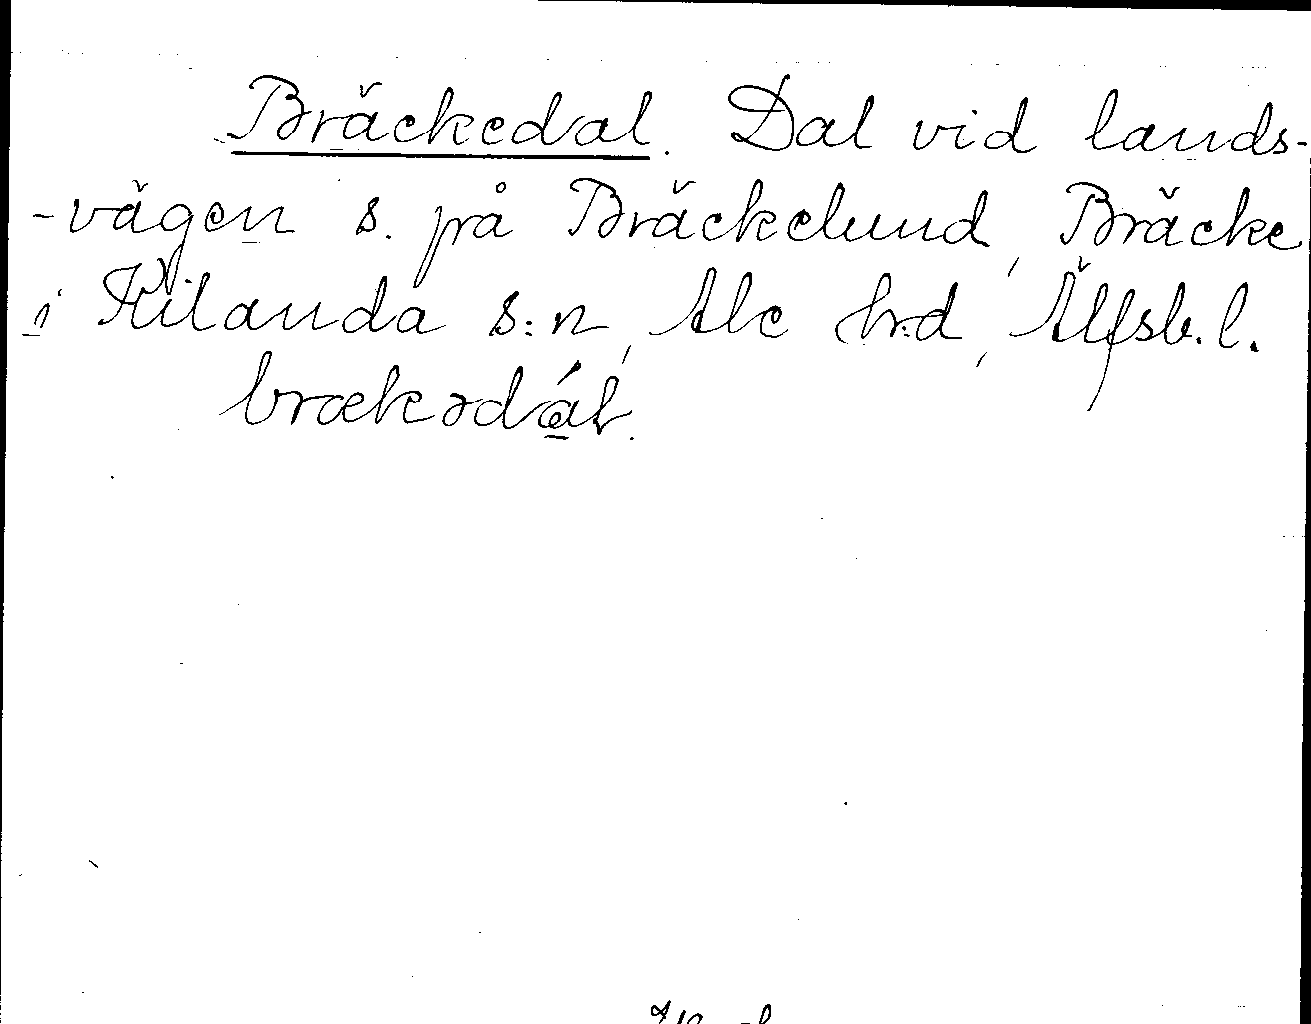 Bräckedal. Dal vid lands-
-vägen s. på Bräckelund, Bräcke
i Kilanda s:n, Ale h:d, Älfsb. l.
brækədál.